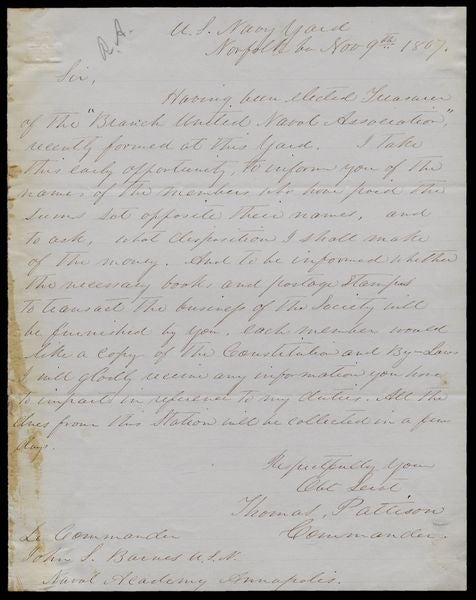 R.A.
U. S. Navy Yard
Norfolk Va Nov 9th 1867.
Sir,
Having been elected Treasurer
of the "Branch United Naval Association,"
recently formed at this Yard. I take
this early opportunity, to inform you of the
names of the members who have paid the
sums set opposite their names, and
to ask, what disposition I shall make
of the money. And to be informed whether
the necessary books and postage Stamps
to transact the business of the Society will
be furnished by you, each member would
like a copy of the Constitution and By-Laws
I will gladly receive any information you have
to impart in reference to my duties. All the
dues from this Station will be collected in a few
days.
Respectfully Your
Obt Servt
Thomas, Pattison
Commander.
Lt Commander
John S. Barnes U.S.N.
Naval Academy Annapolis.